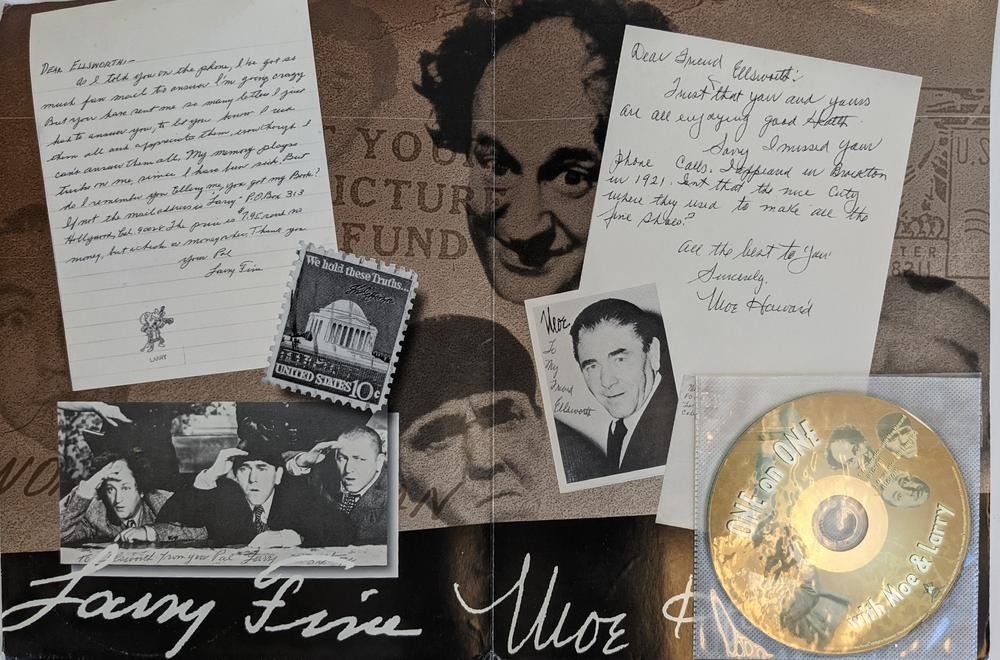 DEAR ELLSWORTH:-
As I told you on the phone, I've got so
much fan mail to answer I'm going crazy
But you have sent me so many letters I guess
had to answer you, to let you know I read
them all and appreciate them, even though I
can't answer them all. My memory plays
tricks on me, since I have been sick. But
do I remember you telling me, you got my Book?
If not the mail address is Larry - P.O. Box 313
Hollywood, Cal. The price is 7.95 send no
money, but a check or money order. Thank you
your Pal
Larry Fine
LARRY
We hold these Truths...
UNITED STATES 10c
To Ellsworth From your Pal Larry
Larry Fine
YOU
ICTURE
FUND
Dear Friend Ellsworth:
Trust that you and yours
are all enjoying good health.
Sorry I missed your
phone calls. I appeared in Brockton
in 1921. Isnt that the nice City
where they used to make all the
fine shoes?
All the best to you
Sincerely,
Moe Howard
Moe
To
My
Friend
Ellsworth
U.S
Moe H
ONE on ONE
with Moe & Larry